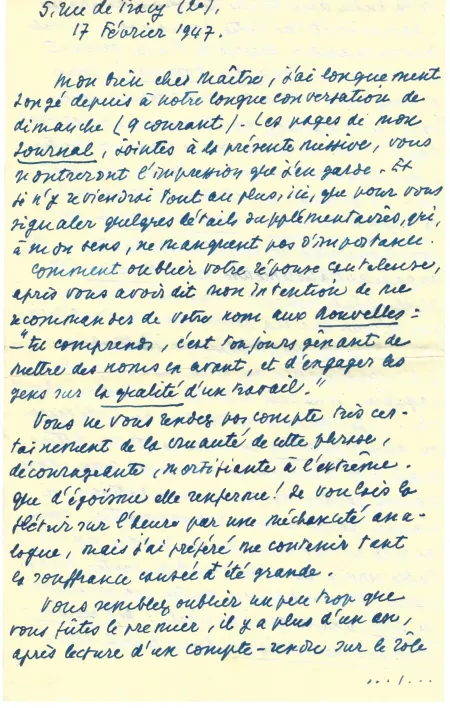 5, rue de Tracy (2e).
17 Février 1947.
Mon bien cher Maître, j'ai longuement
songé depuis à notre longue conversation de
dimanche (9 courant). Les pages de mon
Journal, jointes à la présente missive, vous
montreront l'impression que j'en garde. Et
je n'y reviendrai tout au plus, ici, que pour vous
signaler quelques détails supplémentaires, qui,
à mon sens, ne manquent pas d'importance.
Comment oublier votre réponse cauteleuse,
après vous avoir dit mon intention de me
recommander de votre nom aux Nouvelles :
– "Tu comprends, c'est toujours gênant de
mettre des noms en avant, et d'engager les
gens sur la qualité d'un travail."
Vous ne vous rendez pas compte très cer-
tainement de la cruauté de cette phrase,
décourageante, mortifiante à l'extrême.
Que d'égoïsme elle renferme ! Je voulais la
flétrir sur l'heure par une méchanceté ana-
logue, mais j'ai préféré me contenir tant
la souffrance causée a été grande.
Vous semblez oublier un peu trop que
vous fûtes le premier, il y a plus d'un an,
après lecture d'un compte-rendu sur le rôle
.../...